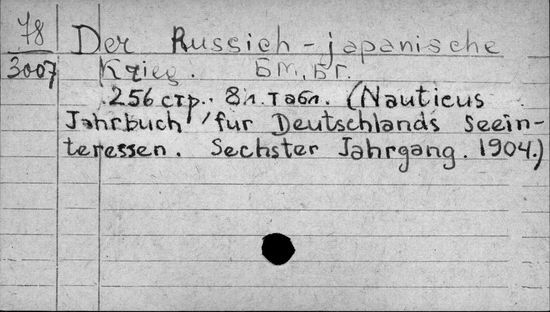 78
3007
Der Russich-japanische
Krieg. Бм., Бг.
256 стр., 8л. табл. (Nauticus
Jahrbuch für Deutschlands Seein-
teressen. Sechster Jahrgang. 1904.)